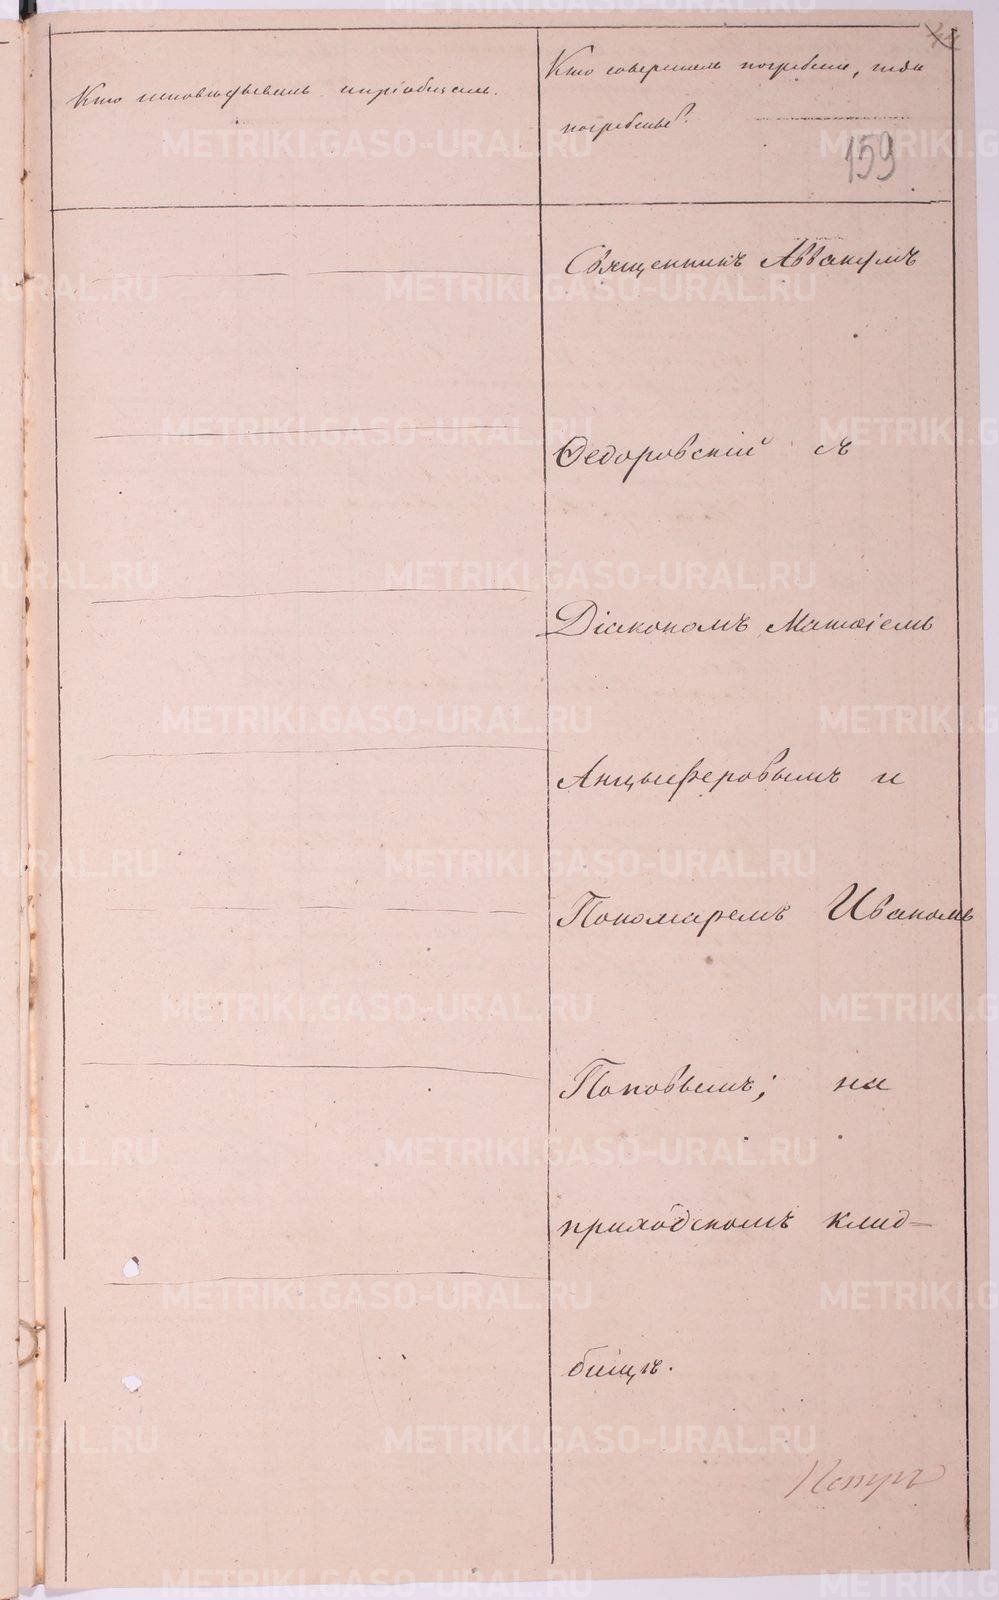 Кто исповѣдывалъ и пріобщалъ.
Кто совершалъ погребеніе, и гдѣ
погребены?
159
Священникъ Аввакумъ
Ѳедоровскій съ
Діакономъ Матѳіемъ
Анцыферовымъ и
Пономаремъ Иваномъ
Поповымъ; на
приходскомъ клад-
бищѣ.
METRIKI.GASO-URAL.RU